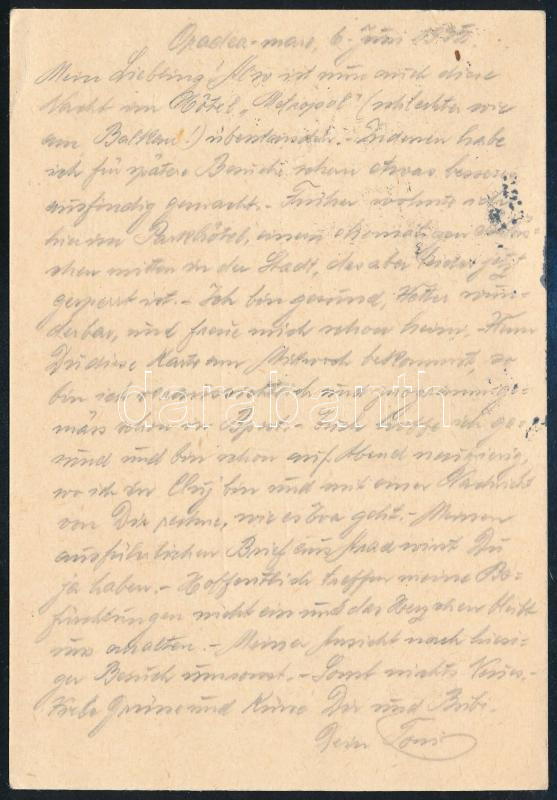 Oradea-mare, 6. Juni
Mein Liebling! Also ist nun auch diese
Nacht im Hôtel „Metropol" (schlechter wie
am Balkan!) überstanden. - Indessen habe
ich für spätere Besuche schon etwas besseres
ausfindig gemacht. - Früher wohnte ich
hier im Parkhôtel, einem ehemaligen
mitten in der Stadt, das aber leider jetzt
gesperrt ist. - Ich bin gesund, Wetter wun-
derbar, und freue mich schon heim. - Wenn
Du diese Karte am Mittwoch bekommst, so
bin ich voraussichtlich und programmge-
mäss schon in
und bin schon auf Abend neugierig,
wo ich in Cluj bin und mit einer Nachricht
von Dir rechne, wie es geht. - Meinen
ausführlichen Brief aus Arad wirst Du
ja haben. - Hoffentlich treffen meine Be-
fürchtungen nicht ein und das Herzchen bleibt
uns erhalten. - Meiner Ansicht nach hiesi-
ger Besuch umsonst. - Sonst nichts Neues. -
Liebe Grüsse und Küsse Dir und Bubi.
Dein Toni
darabanth